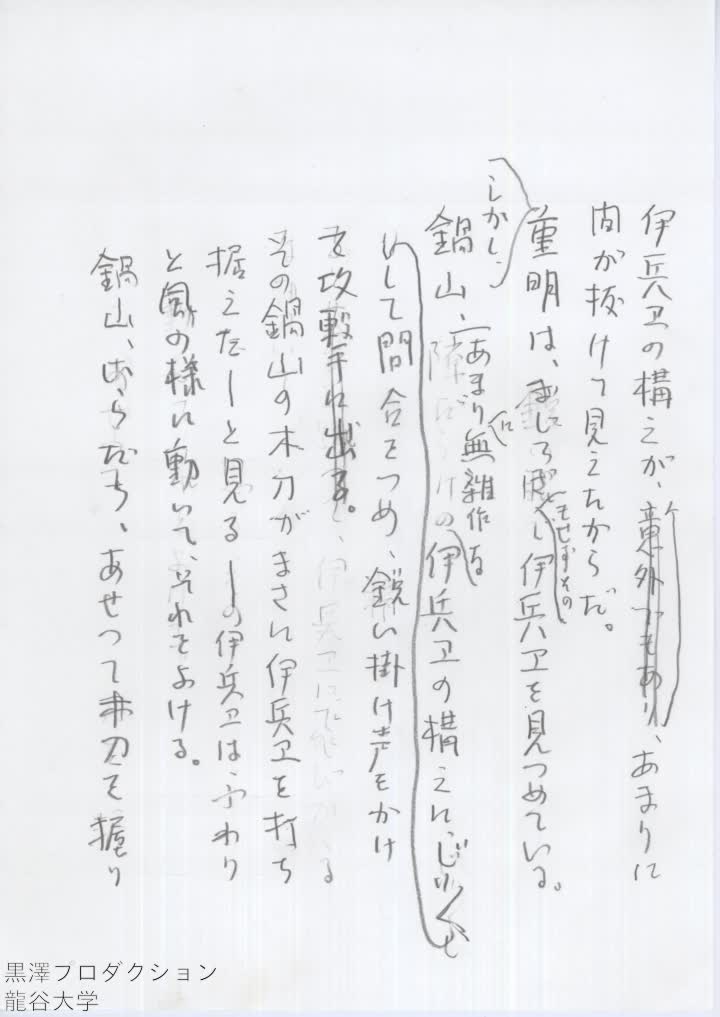 伊兵ヱの構えが、意外でもあり、あまりに
間が抜けて見えたからだ。
重明は、まじろぎもせずその伊兵ヱを見つめている。
しかし、
鍋山、あまりに無雑作なる
伊兵ヱの構えに、じりじりと
して間合をつめ、鋭い掛け声をかけ
て攻撃に出る。
その鍋山の木刀がまさに伊兵ヱを打ち
据えた―と見る―の伊兵ヱはふわり
と風の様に動いて、それをよける。
鍋山、いらだち、あせって木刀を握り
黒澤プロダクション
龍谷大学